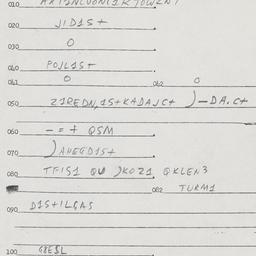 010
020 JID1S+
030 O
040 POJL1S+
041 O 042 O
050 Z1REDN,1S+KADAJC+ )-DA.C+
060 - = + QSM
070 )AHEGD1S+
080 TFIS1 QU )KOZ1 QKLEN3
082 TURM1
090 D1S+ILGAS
100 GREIL